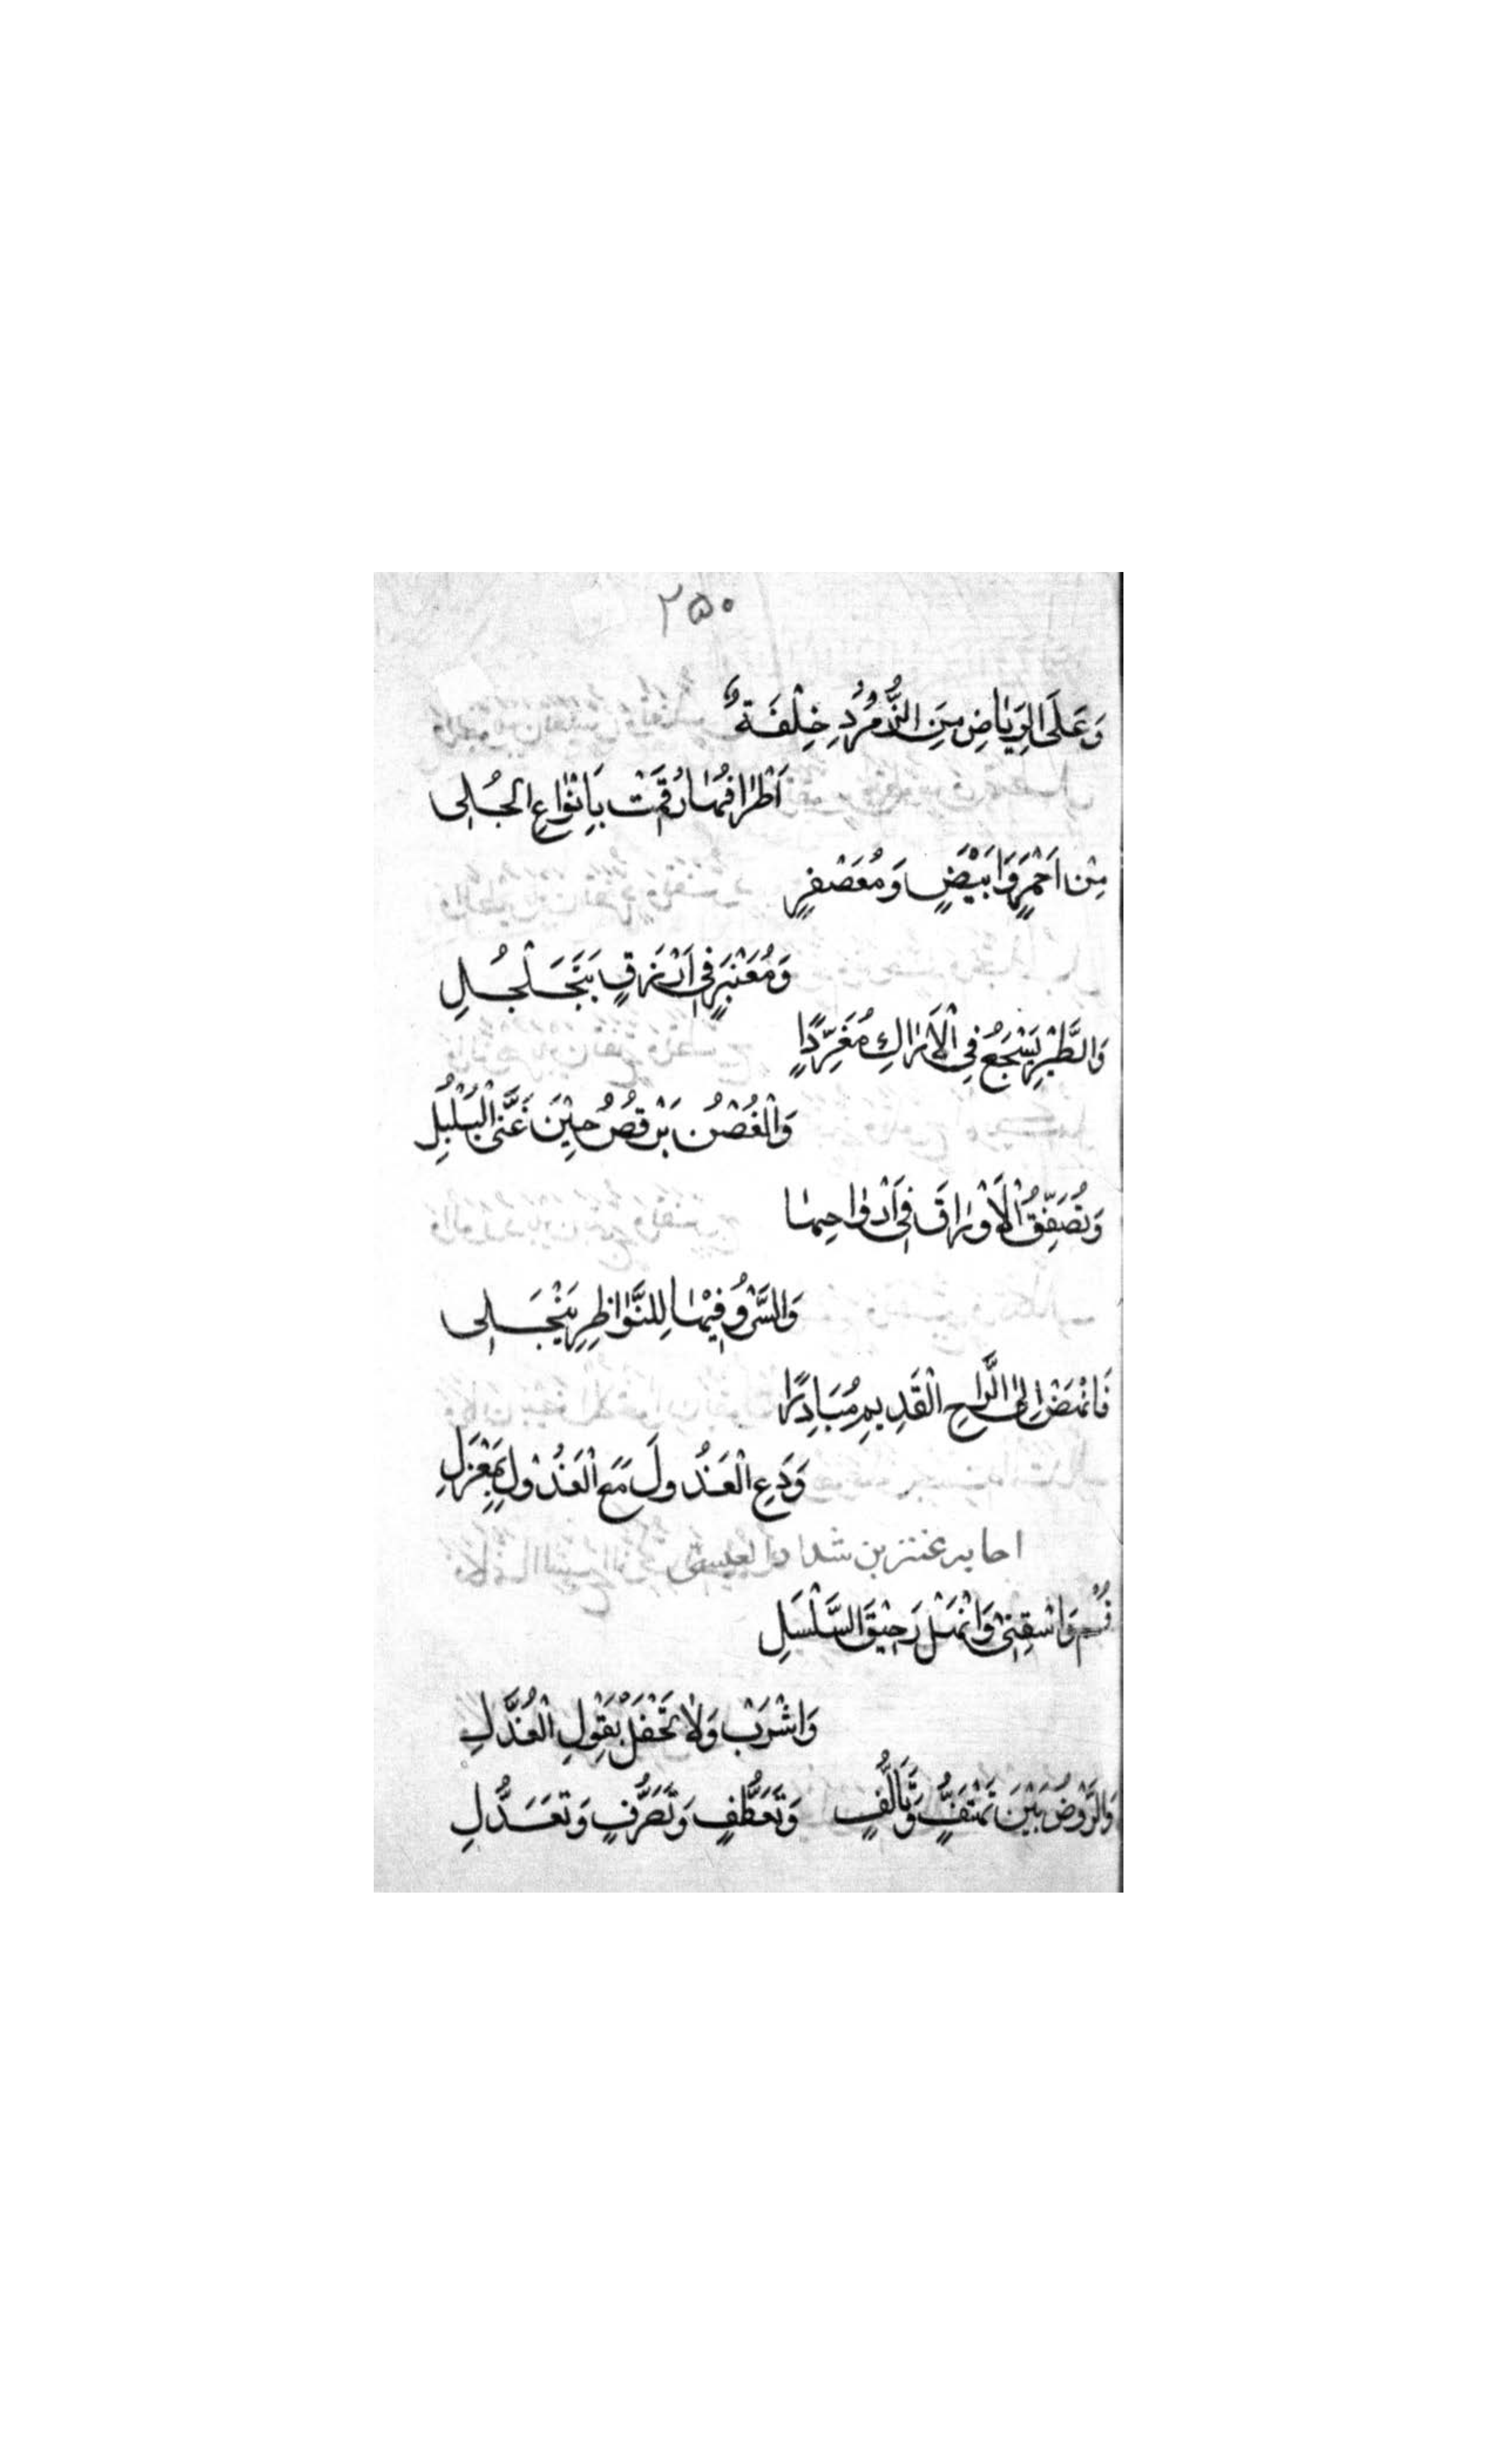 ۲۵۰
وَعَلَى الرِيَاضِ مِنَ الزُّمُرُّدِ خِلْفَةٌ
اَطْرَافُهَا رُقِمَتْ بِاَنْوَاعِ الْجُلِى
مِنْ اَحْمَرٍ وَاَبْيَضٍ وَمُعَصْفِرٍ
وَمُعَنْبَرٍ فِى اَزْرَقٍ يَتَجَلْجُلِ
وَالطَّيْرِ يَسْجَعُ فِى الْاَرَاكِ مُغَرِّدًا
وَالْغُصْنُ يَرْقُصُ حِيْنَ غَنَّى الْبُلْبُلِ
وَتُصَفِّقُ الْاَوْرَاقَ فِى اَدْوَاحِهَا
وَالسَّرْوُ فِيْهَا لِلنَّوَاظِرِ يَنْجَلِى
فَانْهَضْ اِلَى الرَّاحِ الْقَدِيمِ مُبَادِرًا
وَدَعِ الْعَذُولَ مَعَ الْعَذُوْلِ بِمَعْزِلِ
اجابه عنتر بن شداد العبسى
قُمْ وَاسْقِنِىْ وَانْهَلْ رَحِيْقَ السَّلْسَلِ
وَاشْرَبْ وَلَا تَحْفَلْ بِقَوْلِ الْعُذَّلِ
وَالرَّوْضُ بَيْنَ وَتَأَلُّفٍ وَتَعَطُّفٍ وَتَصَرُّفٍ وَتَعَدُّلِ